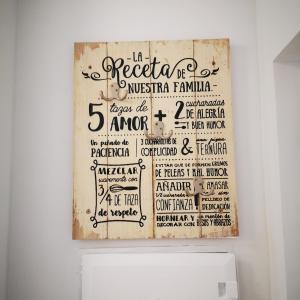 - LA -
Receta DE
NUESTRA FAMILIA.
5 tazas de AMOR + 2 cucharadas DE ALEGRÍA
Y BUEN HUMOR
Un puñado de PACIENCIA
3 CUCHARADITAS DE COMPLICIDAD & TERNURA
EVITAR QUE SE FORMEN GRUMOS
DE PELEAS Y MAL HUMOR
MEZCLAR
suavemente con
3/4 DE TAZA
de respeto
AÑADIR
CONFIANZA
AMASAR
PELLIZCO DE
DEDICACIÓN
HORNEAR Y un montón de
DECORAR CON BESOS Y ABRAZOS